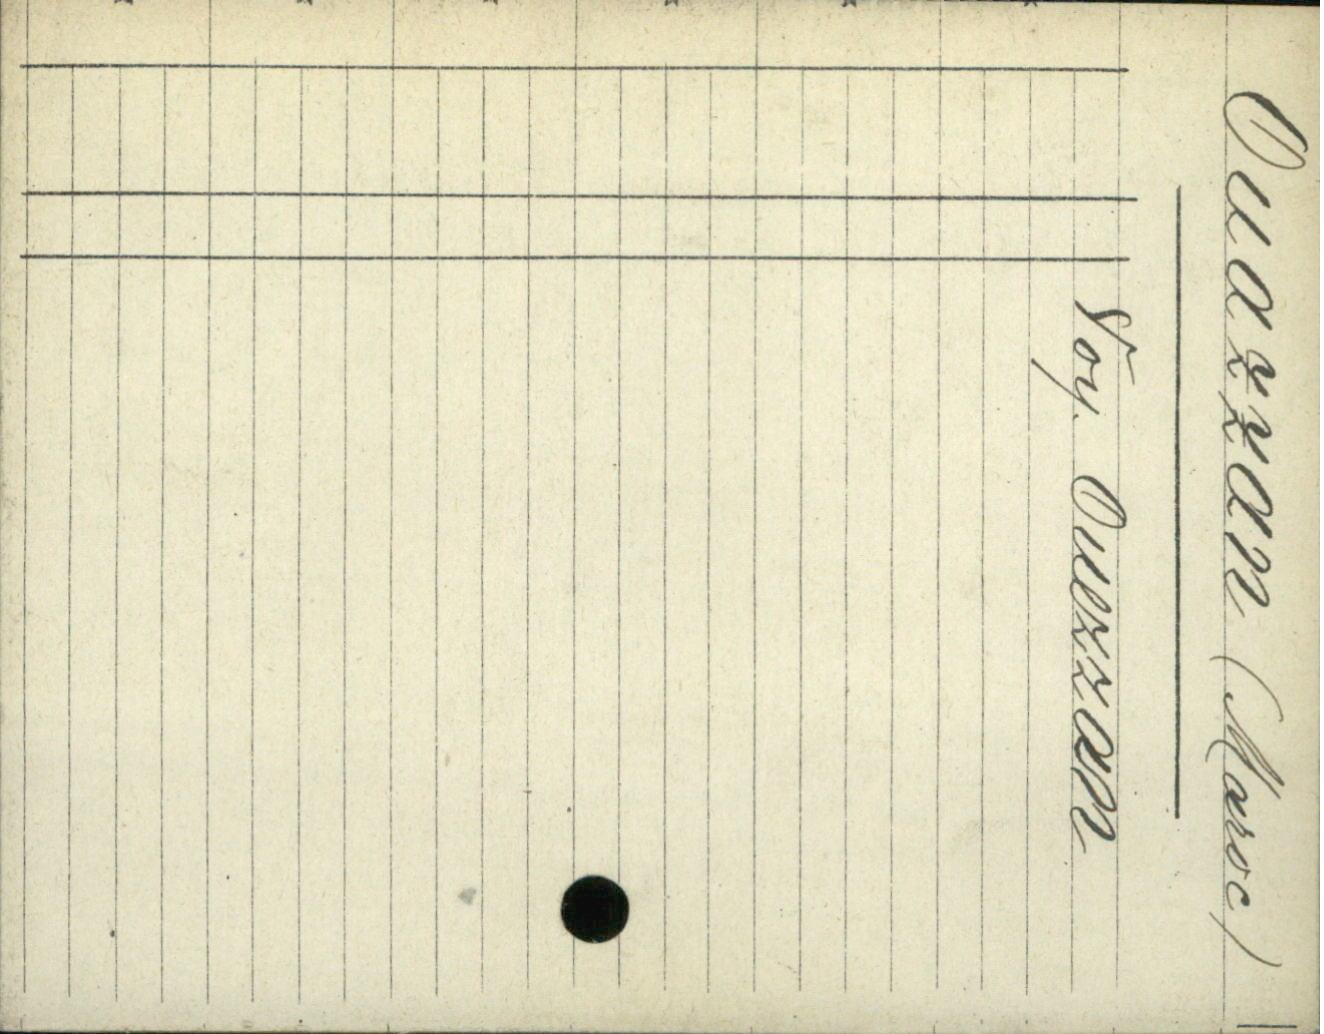 Ouazzan (Maroc)
Voy. Ouezzan